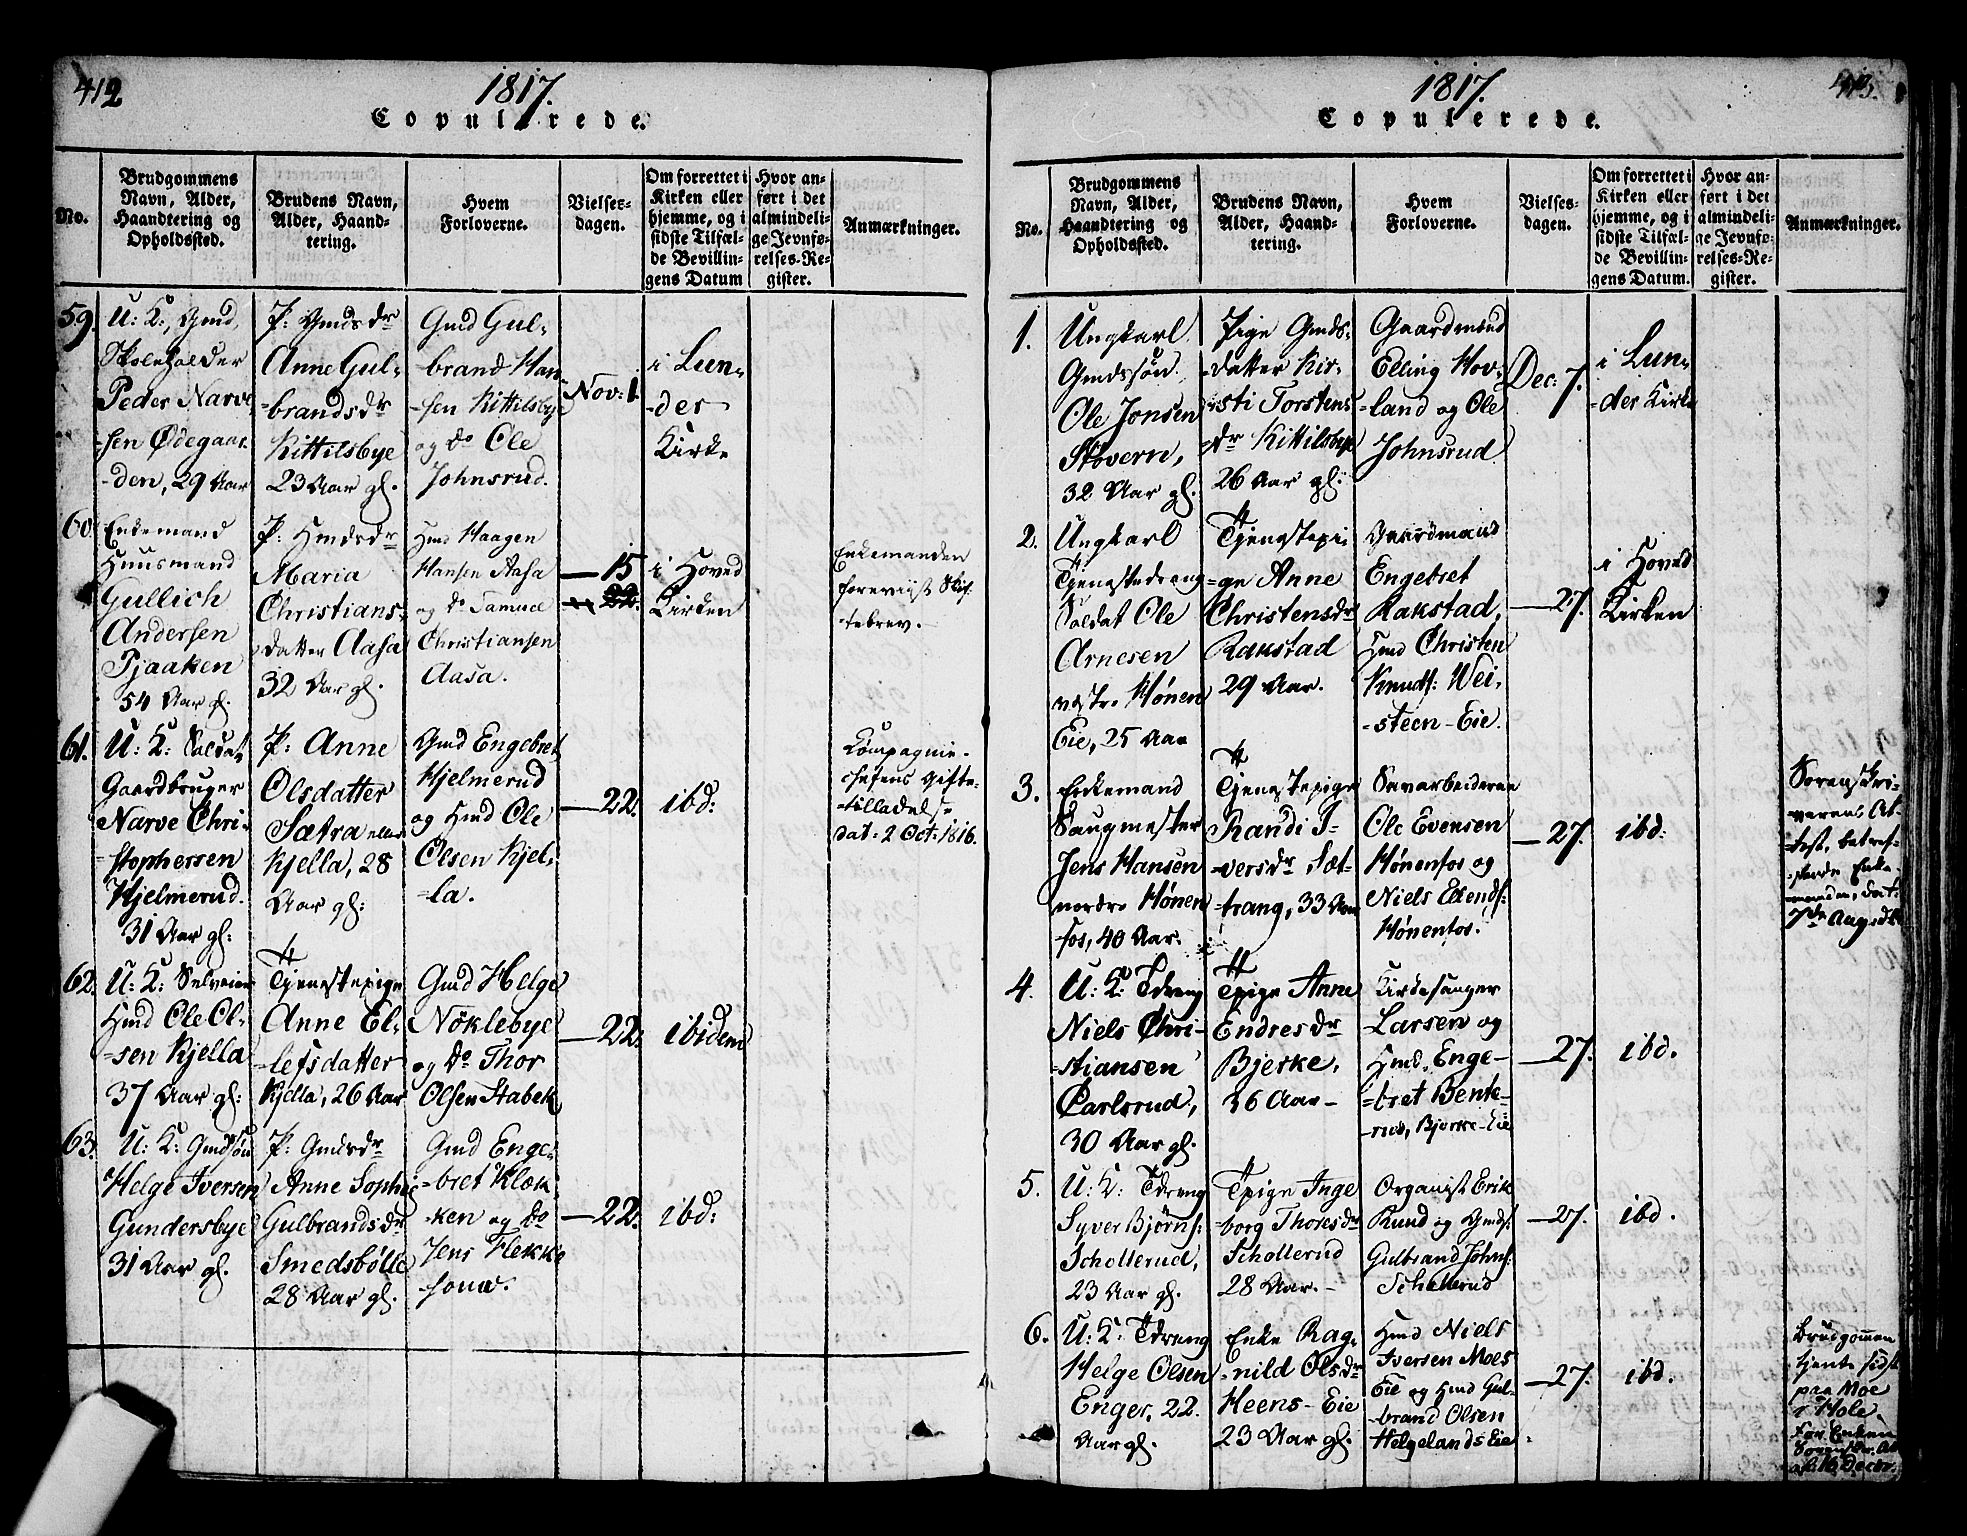 412
1817.
Copulerede.
No.
Brudgommens
Navn, Alder,
Haandtering og
Opholdssted.
Brudens Navn,
Alder, Haand-
tering.
Hvem
Forloverne.
Vielses-
dagen.
Om forrettet i
Kirken eller
hjemme, og i
sidste Tilfæl-
de Bevillin-
gens Datum
Hvor an-
ført i det
almindeli-
ge Jevnfø-
relses-Re-
gister.
Anmærkninger.
59.
U: K:, Gmd,
Skoleholder
Peder Narve
-sen Ødegaar
-den, 29 Aar
P: Gmdsdr
Anne Gul-
-brandsdr
Kittilsbye
23 Aar gl.
Gmd Gul-
-brand Han
-sen Kittilsbye
og do Ole
Johnsrud.
Nov: 1.
i Lun-
-der
Kirke
60.
Enkemand
Huusmand
Gullich
Andersen
Pjaaken
54 Aar gl.
P: Hmdsdr
Maria
Christians-
datter Aasa
32 Aar gl.
Hmd Haagen
Hansen Aasa
og do Samuel
Christiansen
Aasa.
— 15
22.
i Hoved
Kirken
Enkemanden
foreviist Skif-
tebrev.
61.
U: K: Soldat
Gaardbruger
Narve Chri-
-stophersen
Hjelmerud.
31 Aar gl:
P: Anne
Olsdatter
Sætra eller
Kjella, 28
Aar gl:
Gmd Engebret
Hjelmerud
og Hmd Ole
Olsen Kjel-
-la.
— 22.
ibd:
Compagnie-
chefens Gifte-
-tilladelse
dat: 2 Oct: 1816.
62.
U: K: Selveier
Hmd Ole Ol-
-sen Kjella
37 Aar gl:
Tjenestepige
Anne El-
-lefsdatter
Kjella, 26 Aar
Gmd Helge
Nöklebye
og do Thor
Olsen Stabek
— 22.
ibidem
63.
U: K: Gmdsön
Helge Iversen
Gundersbye
31 Aar gl.
P: Gmdsdr
Anne Sophie
Gulbrandsdr
Smedsbølle
28 Aar gl.
Gmd Enge-
-bret Klæk
-ken og do
Jens Flekke
— 22.
ibd:
1817.
413.
Copulerede.
No.
Brudgommens
Navn, Alder,
Haandtering og
Opholdssted.
Brudens Navn,
Alder, Haand-
tering.
Hvem
Forloverne.
Vielses-
dagen.
Om forrettet i
Kirken eller
hjemme, og i
sidste Tilfæl-
de Bevillin-
gens Datum.
Hvor an-
ført i det
almindeli-
ge Jevnfø-
relses-Re-
gister.
Anmærkninger.
1.
Ungkarl
Gmdssön
Ole Jonsen
Stovern,
32 Aar gl.
Pige Gmds-
-datter Kir-
-sti Torstens
-dr Kittilsbye
26 Aar gl:
Gaardmænd
Elling Hov-
-land og Ole
Johnsrud
Dec: 7.
i Lun-
-der Kirke
2.
Ungkarl
Tjenestedreng
Soldat Ole
Arnesen
vestre Hönen
Eie, 25 Aar
Tjenestepi-
-ge Anne
Christensdr
Rakstad
29 Aar.
Gaardmand
Engebret
Rakstad,
Hmd Christen
Knuds: Wei-
-steen-Eie.
— 27.
i Hoved
Kirken
3.
Enkemand
Saugmester
Jens Hansen
nordre Hönen
fos, 40 Aar.
Tjenestepige
Randi I-
-versdr Sæt-
-trang, 33 Aar
Savarbeiderne
Ole Evensen
Hönenfos og
Niels
Hönenfos.
— 27.
ibd:
Sorenskri-
-verens At-
-test, betref-
-fende Enke
-manden, dat.
4.
U: K: Tdreng
Niels Chri-
-stiansen
Carlsrud,
30 Aar gl.
Tpige Anne
Endresdr
Bjerke,
36 Aar —
Kirkesanger
Larsen og
Hmd. Enge-
-bret Bent-
Bjerke-Eie
— 27.
ibd.
5.
U: K: Tdreng
Syver Bjørns:
Schollerud,
23 Aar gl.
Tpige Inge
-borg Thoresdr
Schollerud
28 Aar. —
Organist Erik
Rund og Gmds:
Gulbrand Johns:
Schollerud
— 27.
ibd.
6.
U: K: Tdreng
Helge Olsen
Enger, 22
Aar gl.
Enke Rag-
-nild Olsdr
Heens-Eie
23 Aar gl.
Hmd Niels
Iversen Moes
Eie og Hmd Gul-
-brand Olsen
HelgelandsEie
— 27.
ibd.
Brudgommen
tjente sidst
paa Moe
i Hole.
For Enken